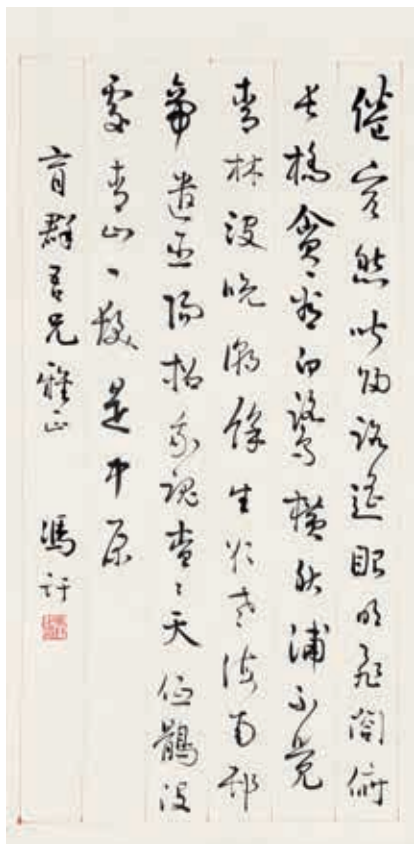 倦客愁歸路遙眼明飛閣俯
長橋貪看白鷺橫秋浦不覺
青林没晚潮餘生欲老海南邨
帝遣巫陽招我魂杳〻天低鶻没
處青山一髮是中原
育群吾兄雅正 馮